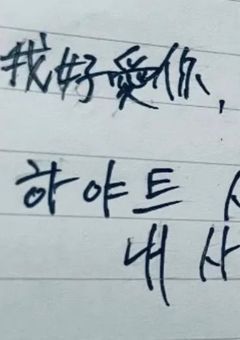 我好愛你,
하야트
내